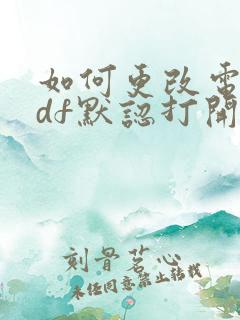 如何更改電
df默認打開
刻骨茗心
未经同意禁止转载